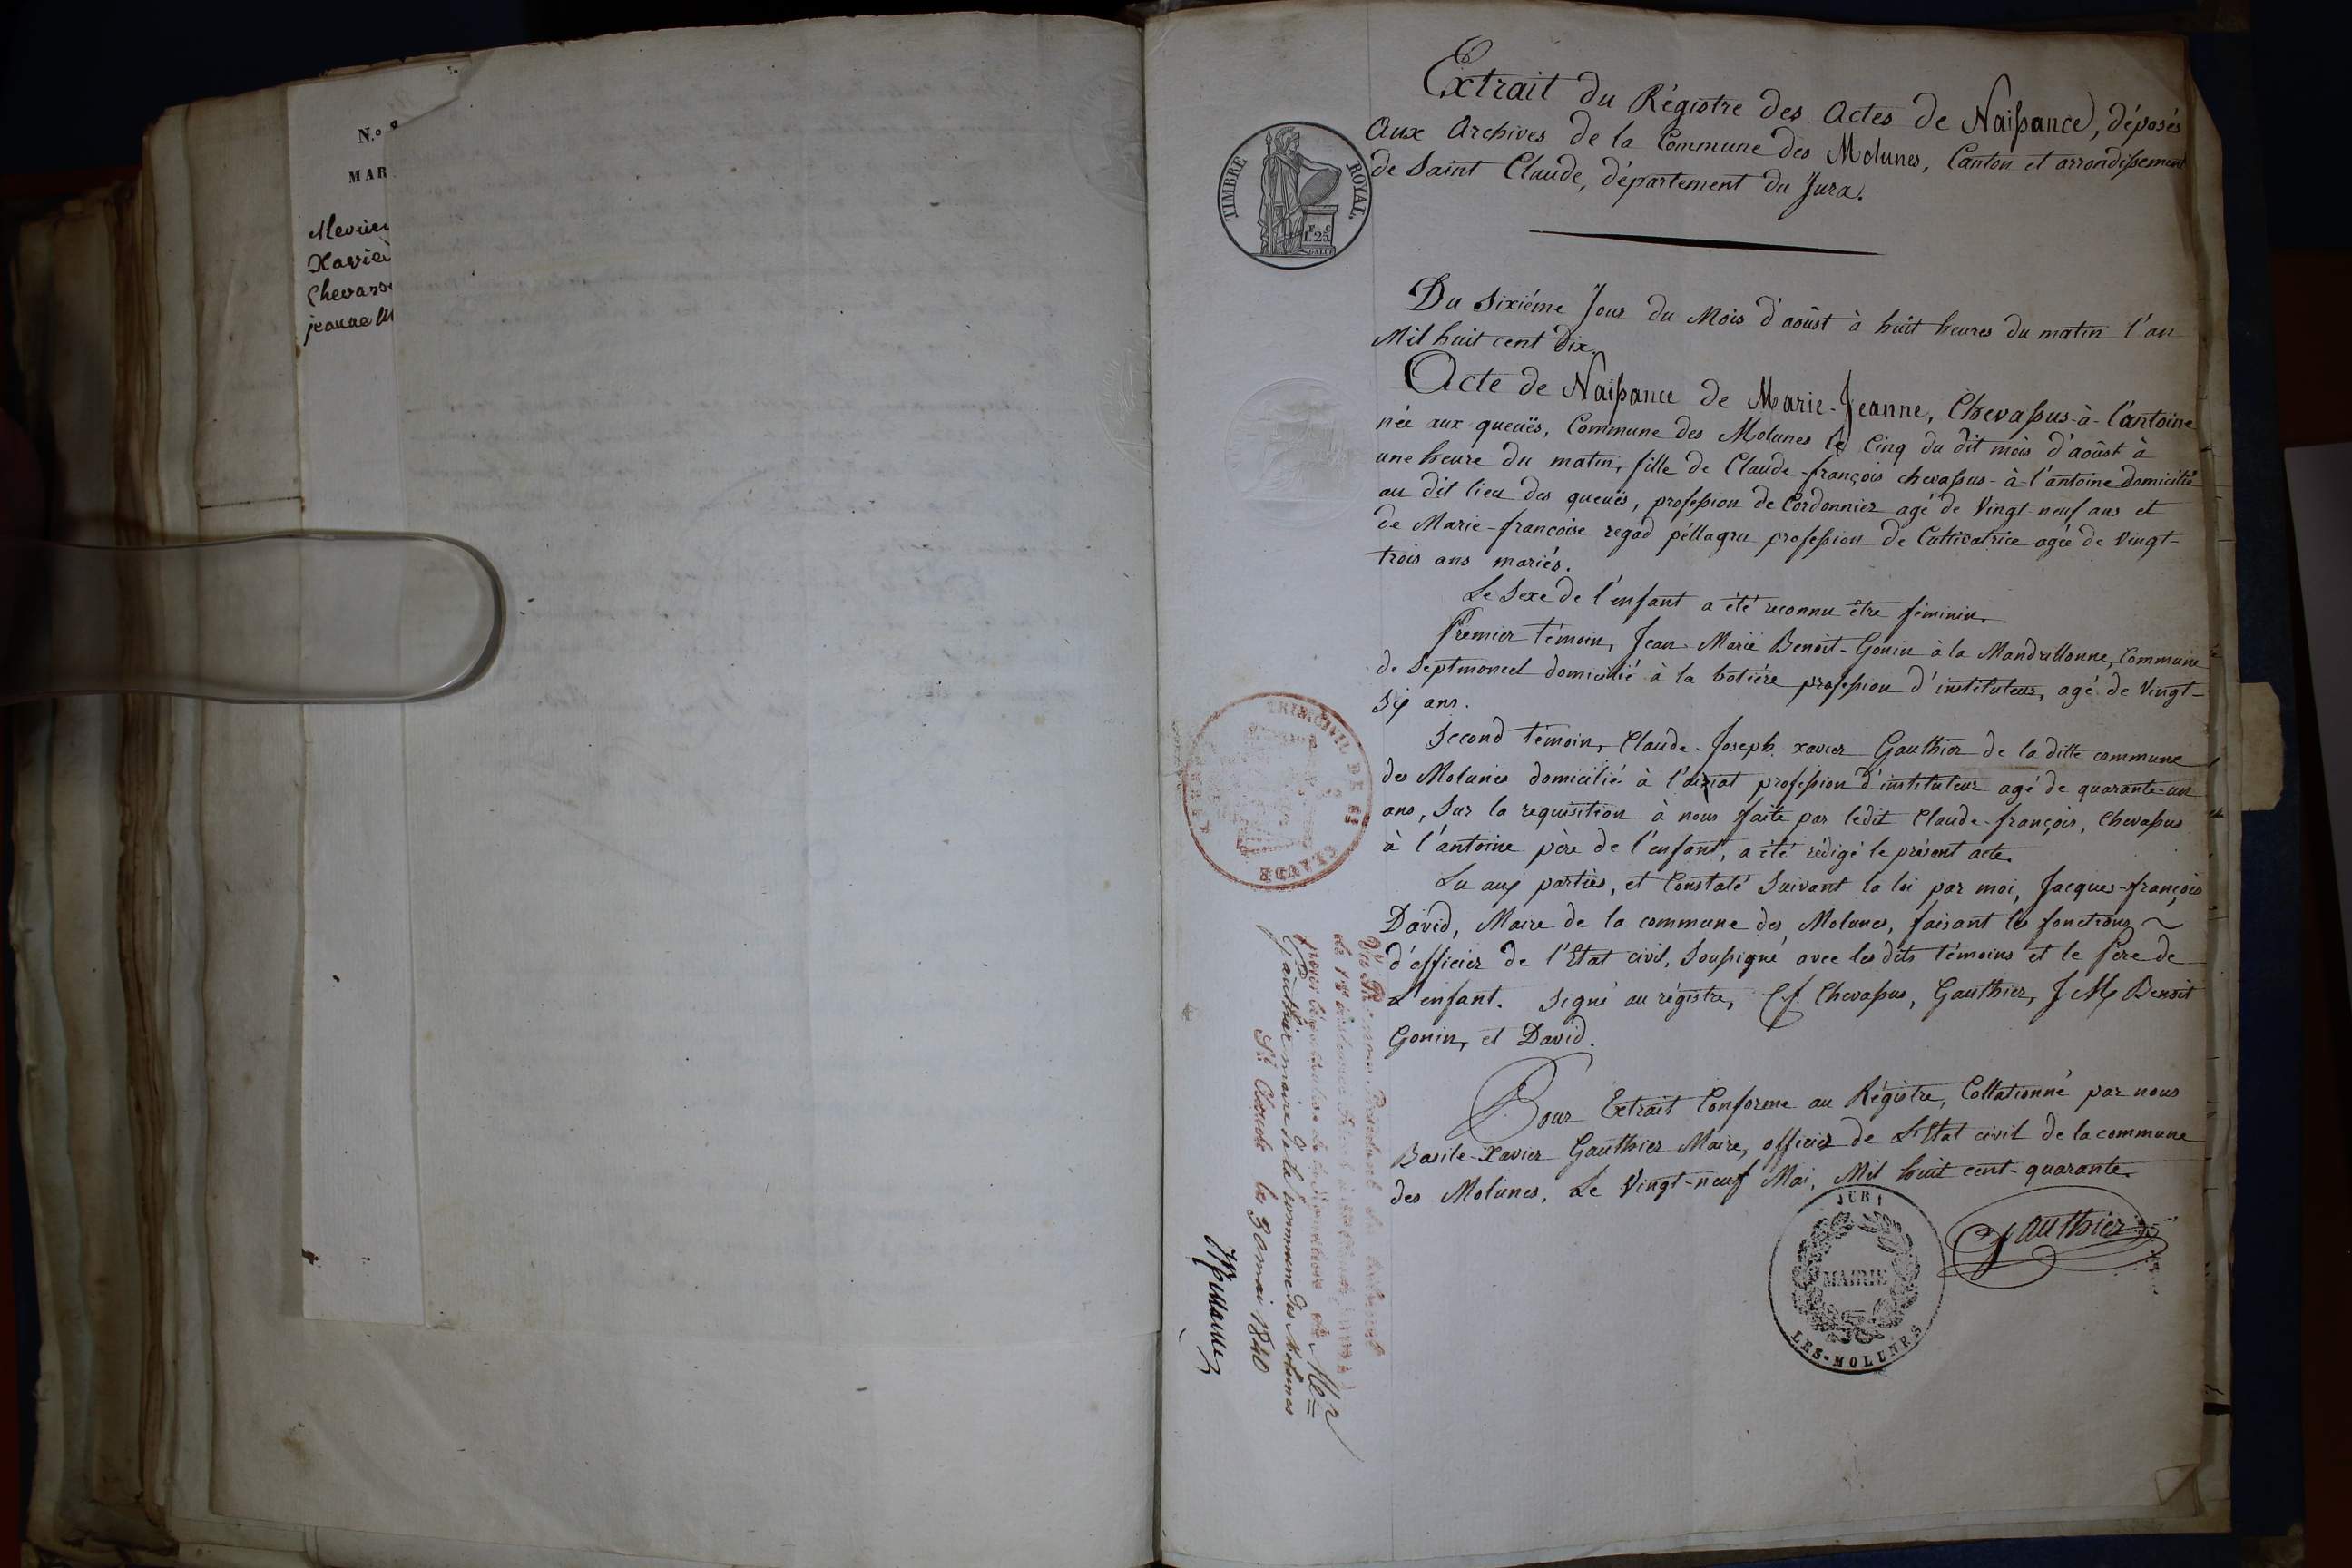 N.o
MAR
Xavier
Chevass
jeanne M
TIMBRE ROYAL
F. C.
1.25
Extrait du Régistre des Actes de Naissance, déposés
Aux Archives de la Commune des Molunes, Canton et arrondissement
de Saint Claude, département du Jura.
Du Sixiéme Jour du Mois d'aoûst à huit heures du matin l'an
Mil huit cent dix.
Acte de Naissance de Marie-Jeanne, Chevassus-à-l'antoine
née aux queuës, Commune des Molunes le Cinq du dit mois d'aoûst à
une heure du matin, fille de Claude-françois chevassus-à-l'antoine domicilié
au dit lieu des queuës, profession de Cordonnier agé de Vingt neuf ans et
de Marie-francoise regad péllagru profession de Cultivatrice agée de Vingt-
trois ans mariés.
Le Sexe de l'enfant a été reconnu être féminin.
Premier témoin, Jean-Marie Benoit-Gonin à la Mandrillonne, Commune
de Septmoncel domicilié à la botiére profession d'instituteur, agé de Vingt-
Six ans.
Second témoin, Claude-Joseph xavier Gauthier de la ditte commune
des Molunes domicilié à l'aiziat profession d'instituteur agé de quarante-un
ans, Sur la requisition à nous faite par ledit Claude-françois, Chevassus
à l'antoine père de l'enfant, a été rédigé le présent acte.
Lu aux parties, et Constaté Suivant la loi par moi, Jacques-françois
David, Maire de la commune des Molunes, faisant les fonctions ~
d'officier de l'Etat civil, Soussigné avec les dits témoins et le Père de
L'enfant. Signé au régistre, Cf Chevassus, Gauthier, J M Benoit
Gonin, et David.
Pour Extrait Conforme au Régistre, Collationné par nous
Basile-Xavier Gauthier Maire, officier de L'Etat civil de la commune
des Molunes, Le Vingt-neuf Mai, Mil huit cent-quarante.
Gauthier
JURA
MAIRIE
LES-MOLUNES
TRIB. CIVIL DE ST CLAUDE
Vu Par nous Président du tribunal
de 1re instance
pour légalisation de la signature de Mr
Gauthier maire de la commune des Molunes
St Claude le 30 mai 1840